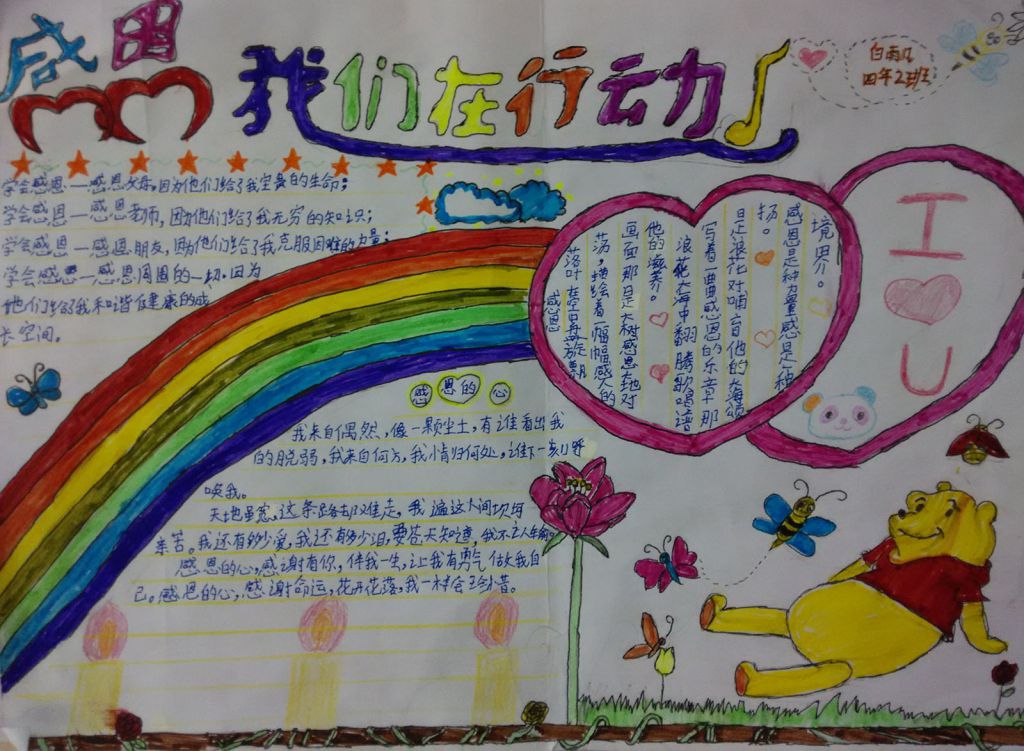 感恩
我们在行动
白雨凡
四年2班
学会感恩—感恩父母,因为他们给了我宝贵的生命;
学会感恩—感恩老师,因为他们给了我无穷的知识;
学会感恩—感恩朋友,因为他们给了我克服困难的力量;
学会感恩—感恩周围的一切,因为
他们给了我和谐健康的成
长空间。
感恩
落叶在空中旋飘
荡,描绘着一幅幅感人的
画面那是大树感恩大地对
他的滋养。
浪花大海中翻腾歌唱谱
写着一曲曲感恩的乐章那
是浪花对哺育他的大海颂
扬。
感恩是种力量感是种
境界。
I
U
感恩的心
我来自偶然,像一颗尘土,有谁看出我
的脱弱,我来自何方,我情归何处,谁下一刻呼
唤我。
天地虽宽,这条路却难走,我遍这人间坎坷
辛苦。我还有多少爱,我还有多少泪,要苍天知道,我不认输。
感恩的心,感谢有你,伴我一生,让我有勇气做我自
己。感恩的心,感谢命运,花开花落,我一样会珍惜。